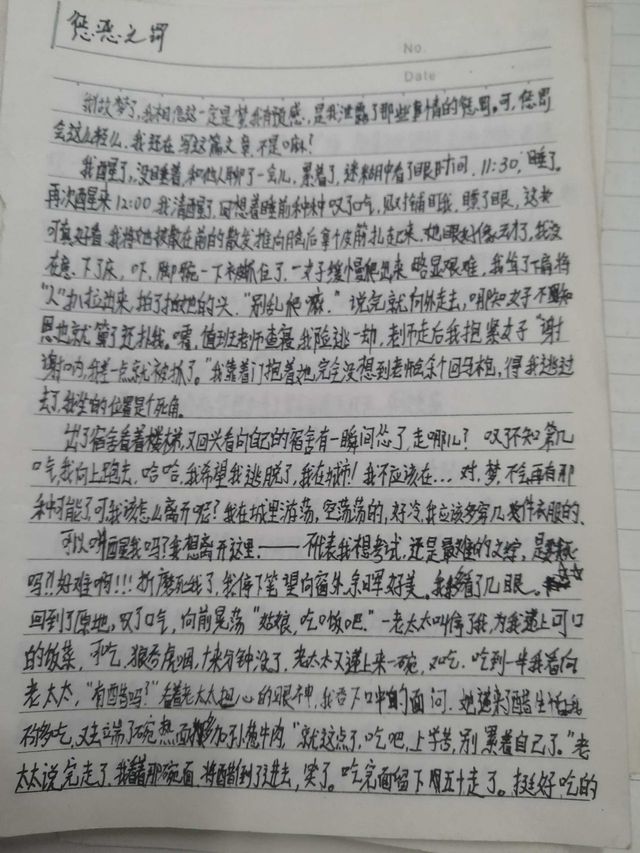 惩恶之罚
No.
Date
我相信这一定是梦,我有预感,是我泄露了那些事情的惩罚。可,惩罚
会这么轻么,我还在写这篇文章不是嘛!
我醒了,没睡着,和他人聊了一会儿,累着了,迷糊中看了眼时间,11:30,睡了。
再次醒来12:00,我清醒了,回想着睡前种种叹了口气,
可真好看,我将被散在前的散发推向脑后拿个皮筋扎起来,
在意,下了床,吓,脚腕一下被抓住了,一女子缓慢爬出来,略显艰难,我
"人"扒拉出来,拍了拍她的头,"别乱爬嘛。"说完就向外走去,
恩也就算了还扑我。嘿,值班老师查寝,我险逃一劫,老师走后我抱紧女子"谢谢
我差一点就被抓了。"我靠着门抱着她,完全没想到老师会杀个回马枪,得我逃过
去了,我坐的位置是个死角。
出了宿舍看着楼梯,又回头看向自己的宿舍有一瞬间怂了,走哪儿?叹了不知第几
口气,我向上跑去,哈哈,我希望我逃脱了,我在城市!我不应该在...对,梦,不会再有那
种可能了,可我该怎么离开呢?我在城里游荡,空荡荡的,好冷,我应该多穿几件衣服的、
可以唤醒我吗?我想离开这里!——不代表我想考试,还是最难的文综,是
吗?!好难啊!!!折磨死我了,我停下笔望向窗外,余晖好美。我看了几眼。
回到了原地,叹了口气,向前晃荡"姑娘,吃口饭吧。"一老太太叫停了我,为我递上可口
的饭菜,可吃,狼吞虎咽,十来分钟没了,老太太又递上来一碗,又吃,吃到一半我看向
老太太,"有醋吗?"看着老太太担心的眼神,我吞下口中的面问,她递来了醋生怕我
不够吃,又去端了碗热面牛肉,"就这点了,吃吧,上学苦,别累着自己了。"老
太太说完走了,我看着那碗面,将醋倒了进去,笑了。吃完面留下五十走了。挺好吃的